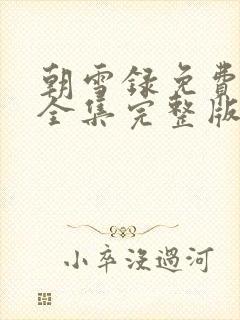 朝雪録免費
全集完整版
小卒沒過河